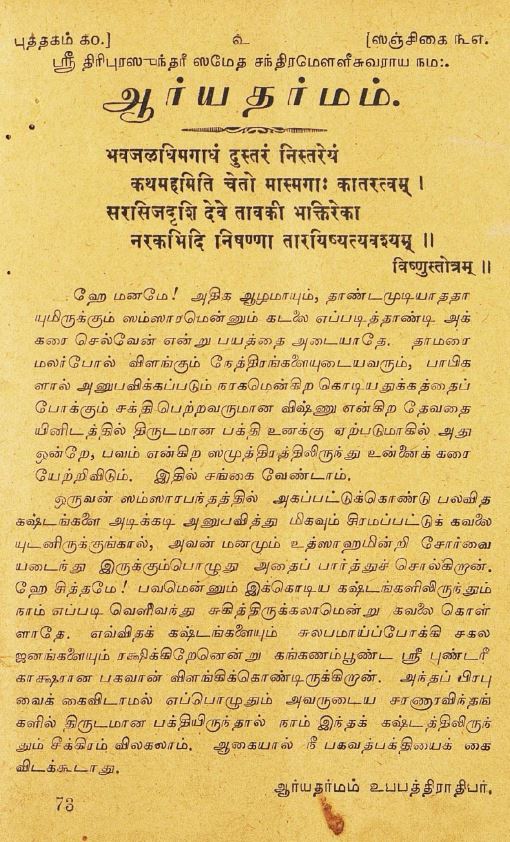 புத்தகம் ௧௦.] ௳ [ஸஞ்சிகை ௩௭.
ஸ்ரீ திரிபுரஸுந்தரீ ஸமேத சந்திரமௌளீசுவராய நம:.
ஆர்யதர்மம்.
भवजलधिमगाधं दुस्तरं निस्तरेयं
कथमहमिति चेतो मास्मगाः कातरत्वम् ।
सरसिजदृशि देवे तावकी भाक्तिरेका
नरकभिदि निषण्णा तारयिष्यत्यवश्यम् ॥
विष्णुस्तोत्रम् ॥
ஹே மனமே! அதிக ஆழமாயும், தாண்டமுடியாததா
யுமிருக்கும் ஸம்ஸாரமென்னும் கடலை எப்படித்தாண்டி அக்
கரை செல்வேன் என்று பயத்தை அடையாதே. தாமரை
மலர்போல் விளங்கும் நேத்திரங்களையுடையவரும், பாபிக
ளால் அனுபவிக்கப்படும் நரகமென்கிற கொடியதுக்கத்தைப்
போக்கும் சக்தி பெற்றவருமான விஷ்ணு என்கிற தேவதை
யினிடத்தில் திருடமான பக்தி உனக்கு ஏற்படுமாகில் அது
ஒன்றே, பவம் என்கிற ஸமுத்திரத்திலிருந்து உன்னைக் கரை
யேற்றிவிடும். இதில் சங்கை வேண்டாம்.
ஒருவன் ஸம்ஸாரபந்தத்தில் அகப்பட்டுக்கொண்டு பலவித
கஷ்டங்களை அடிக்கடி அனுபவித்து மிகவும் சிரமப்பட்டுக் கவலை
யுடனிருக்குங்கால், அவன் மனமும் உத்ஸாஹமின்றி சோர்வை
யடைந்து இருக்கும்பொழுது அதைப் பார்த்துச் சொல்கிறான்.
ஹே சித்தமே! பவமென்னும் இக்கொடிய கஷ்டங்களிலிருந்தும்
நாம் எப்படி வெளிவந்து சுகித்திருக்கலாமென்று கவலை கொள்
ளாதே. எவ்வித கஷ்டங்களையும் சுலபமாய்ப்போக்கி சகல
ஜனங்களையும் ரக்ஷிக்கிறேனென்று கங்கணம்பூண்ட ஸ்ரீ புண்டரீ
காக்ஷரான பகவான் விளங்கிக்கொண்டிருக்கிறான். அந்தப் பிரபு
வைக் கைவிடாமல் எப்பொழுதும் அவருடைய சரணாரவிந்தங்
களில் திருடமான பக்தியிருந்தால் நாம் இந்தக் கஷ்டத்திலிருந்
தும் சீக்கிரம் விலகலாம். ஆகையால் நீ பகவத்பக்தியைக் கை
விடக்கூடாது.
ஆர்யதர்மம் உபபத்திராதிபர்.
73